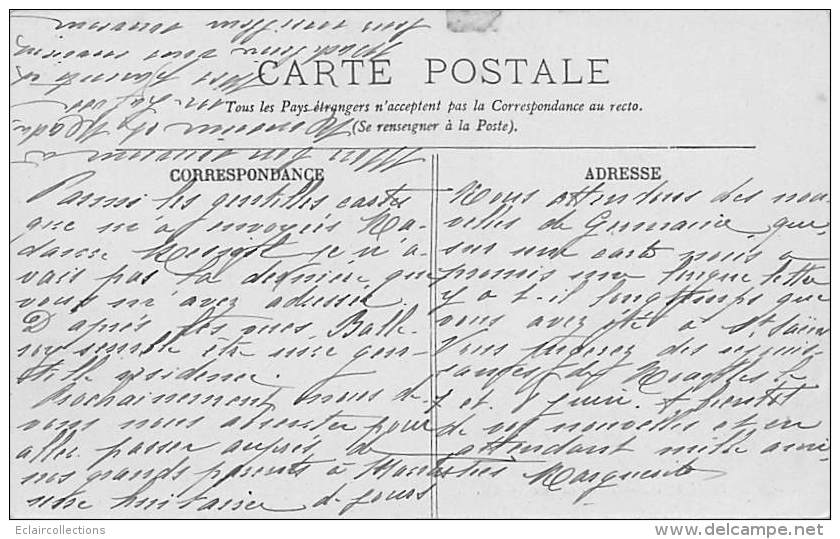 CARTE POSTALE
Tous les Pays étrangers n'acceptent pas la Correspondance au recto.
(Se renseigner à la Poste).
CORRESPONDANCE
Parmi les gentilles cartes
que m'a envoyées Ma-
dame je n'a-
vais pas la dernière que
vous m'avez adressée.
D'après les vues, Balle-
roy semble être une gen-
tille résidence.
Prochainement nous de-
vons nous absenter pour
aller passer auprès de
nos grands parents à
une huitaine de jours
ADRESSE
Nous attendons des nou-
velles de Germaine, que
sur une carte nous a
promis une longue lettre
y a t-il longtemps que
vous avez été à St Saëns
Vous jugerez des réjouis-
sances de le
7 et 8 juin. A bientôt
de vos nouvelles et en
attendant mille ami-
tiés Marguerite
Eclaircollections
© delcampe.net